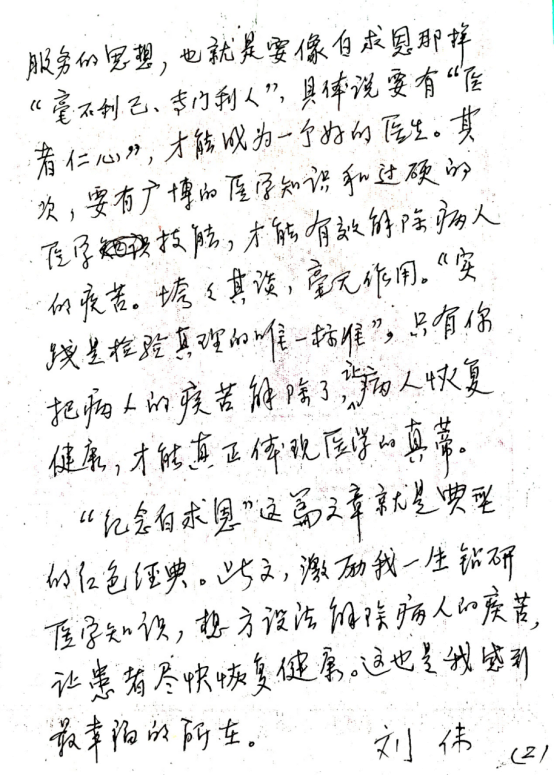 服务的思想，也就是要像白求恩那样
“毫不利己、专门利人”，具体说要有“医
者仁心”，才能成为一个好的医生。其
次，要有广博的医学知识和过硬的
医学技能，才能有效解除病人
的疾苦。夸夸其谈，毫无作用。“实
践是检验真理的唯一标准”，只有你
把病人的疾苦解除了，让病人恢复
健康，才能真正体现医学的真蒂。
“纪念白求恩”这篇文章就是典型
的红色经典。此文，激励我一生钻研
医学知识，想方设法解除病人的疾苦，
让患者尽快恢复健康。这也是我感到
最幸福的所在。
刘伟 (2)